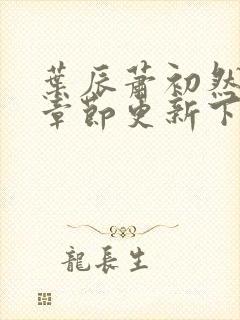 葉辰蕭初然
章節更新下
龍長生